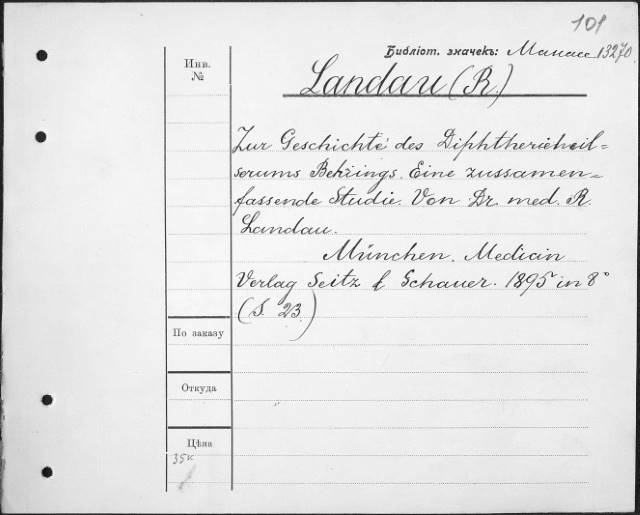 101
Библіот. значекъ: Манасс 13270
Инв.
№
Landau (R.)
Zur Geschichte des Diphtherieheil=
serums Behrings. Eine zussamen=
fassende Studie. Von Dr. med. R.
Landau.
München. Medicin
Verlag Seitz & Schauer. 1895 in 8°
(S. 23.)
По заказу
Откуда
Цѣна
35к